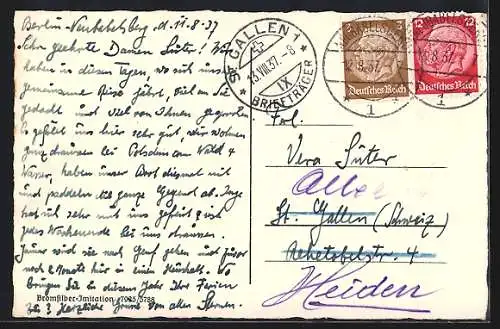 Berlin-Neubabelsberg, d. 11.8.37
Sehr geehrte Damen Suter! Wir
haben in diesen Tagen, wo sich unsere
gemeinsame Reise jährt, viel an Sie
gedacht und viel von Ihnen gesprochen.
Es gefällt uns hier sehr gut, wir wohnen
ganz draussen bei Potsdam am Wald &
Wasser, haben unser Boot diesmal mit
und paddeln die ganze Gegend ab. Inge
hat sich sehr mit uns gefreut & ist
jedes Wochenende bei uns draussen.
Jänner wird sie nach Genf gehen und zuvor
noch 2 Monate hier in einen Haushalt. Wo
bringen Sie in diesem Jahr Ihre Ferien
zu? Herzliche Grüsse von allen
Bromsilber-Imitation 7025/3788
ST. GALLEN 1
13.VIII.37. 8
IX
BRIEFTRÄGER
3
Deutsches Reich
12
Deutsches Reich
8.37
1
1
Frl.
Vera Suter
St. Gallen (Schweiz)
4
Heiden